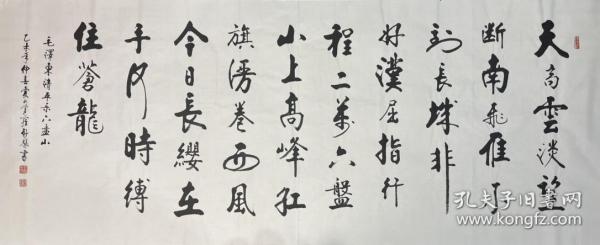 天高雲淡望
断南飛雁不
到長城非
好漢屈指行
程二萬六盤
山上高峰紅
旗漫卷西風
今日長纓在
手何時縛
住蒼龍
毛澤東詩 六盘山
乙未年仲春 書
孔夫子旧书网
www.kongfz.com